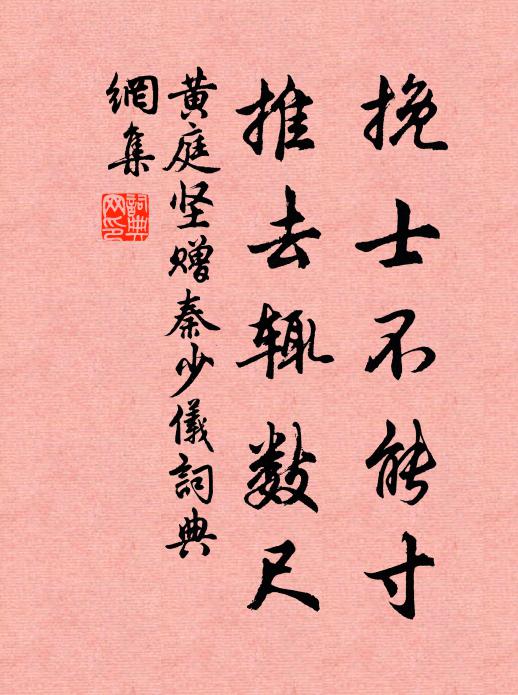 挽士不能寸
推去辄数尺
黄庭坚赠秦少儀詞典
網集
詞典
网印